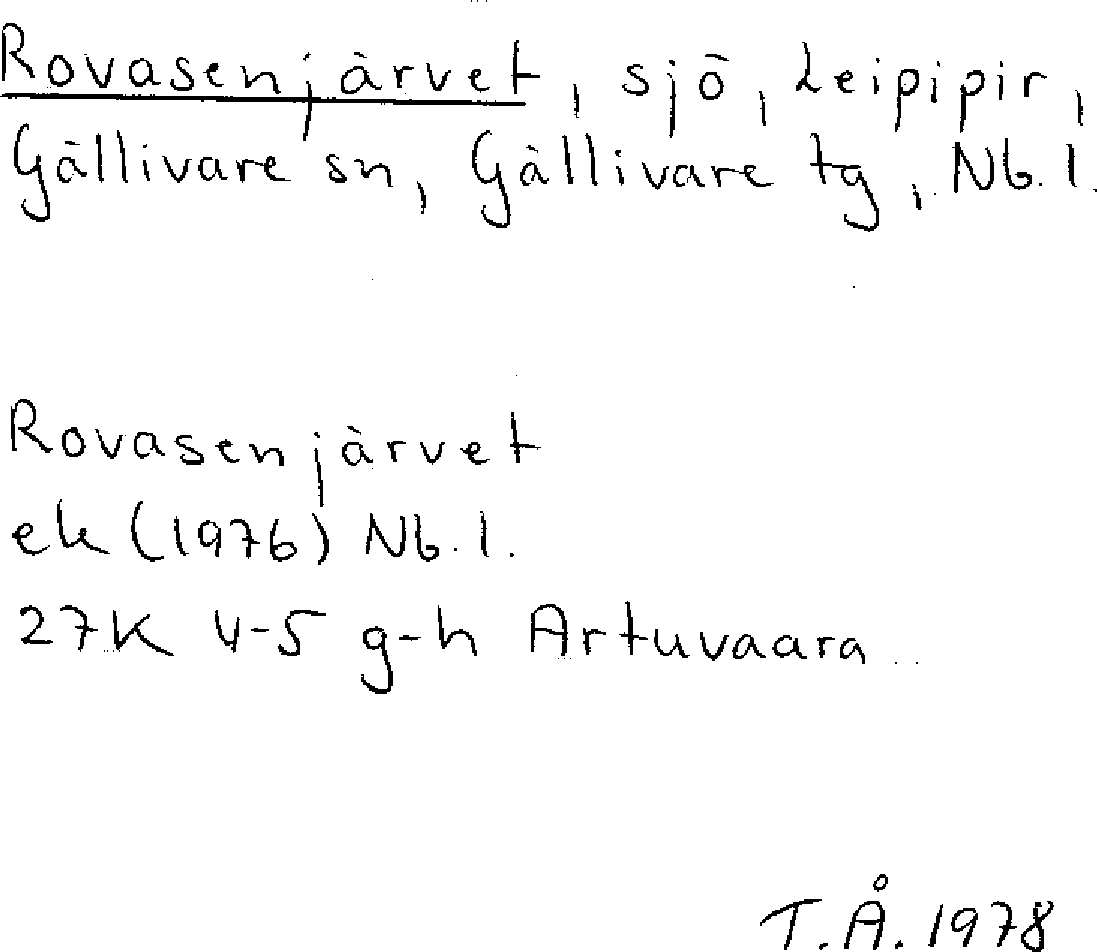 Rovasenjärvet, sjö, Leipipir,
Gällivare sn, Gällivare tg, Nb. l.
Rovasenjärvet
ek (1976) Nb. l.
27K 4-5 g-h Artuvaara
T.Å. 1978